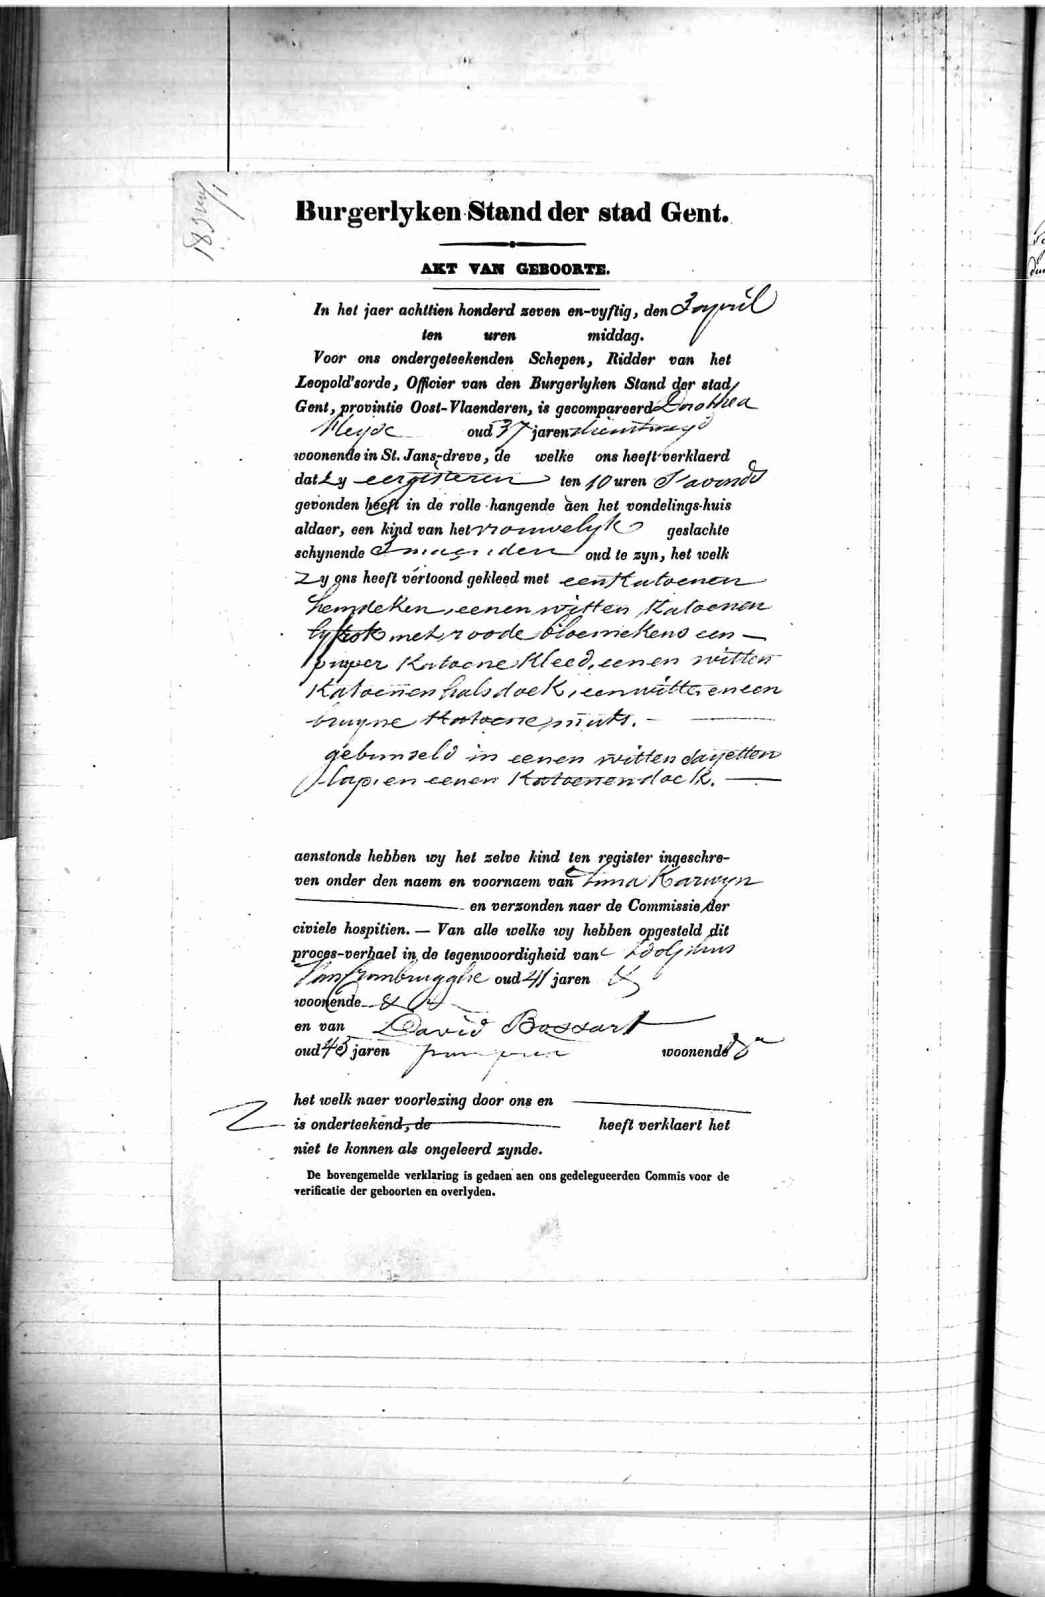 Burgerlyken Stand der stad Gent.
AKT VAN GEBOORTE.
In het jaer achttien honderd zeven en-vyftig, den 3 april
ten uren middag.
Voor ons ondergeteekenden Schepen, Ridder van het
Leopold'sorde, Officier van den Burgerlyken Stand der stad
Gent, provintie Oost-Vlaenderen, is gecompareerd Dorothea
oud 37 jaren dienstmeyd
woonende in St. Jans-dreve, de welke ons heeft verklaerd
dat zy eergisteren ten 10 uren s'avonds
gevonden heeft in de rolle hangende aen het vondelings-huis
aldaer, een kind van het vrouwelyk geslachte
schynende oud te zyn, het welk
zy ons heeft vertoond gekleed met een Katoenen
hemdeken, eenen witten Katoenen
met roode bloemekens een
purper Katoene Kleed, eenen witten
Katoenen halsdoek, een witte en een
bruyne Katoene muts.
gebunseld in eenen witten
lap, en eenen Katoenen doek.
aenstonds hebben wy het zelve kind ten register ingeschre-
ven onder den naem en voornaem van Karwyn
en verzonden naer de Commissie der
civiele hospitien. — Van alle welke wy hebben opgesteld dit
proces-verbael in de tegenwoordigheid van Adolphus
Van Crombrugghe oud 41 jaren
woonende
en van David Bossart
oud 43 jaren woonende
het welk naer voorlezing door ons en
is onderteekend, de heeft verklaert het
niet te konnen als ongeleerd zynde.
De bovengemelde verklaring is gedaen aen ons gedelegueerden Commis voor de
verificatie der geboorten en overlyden.